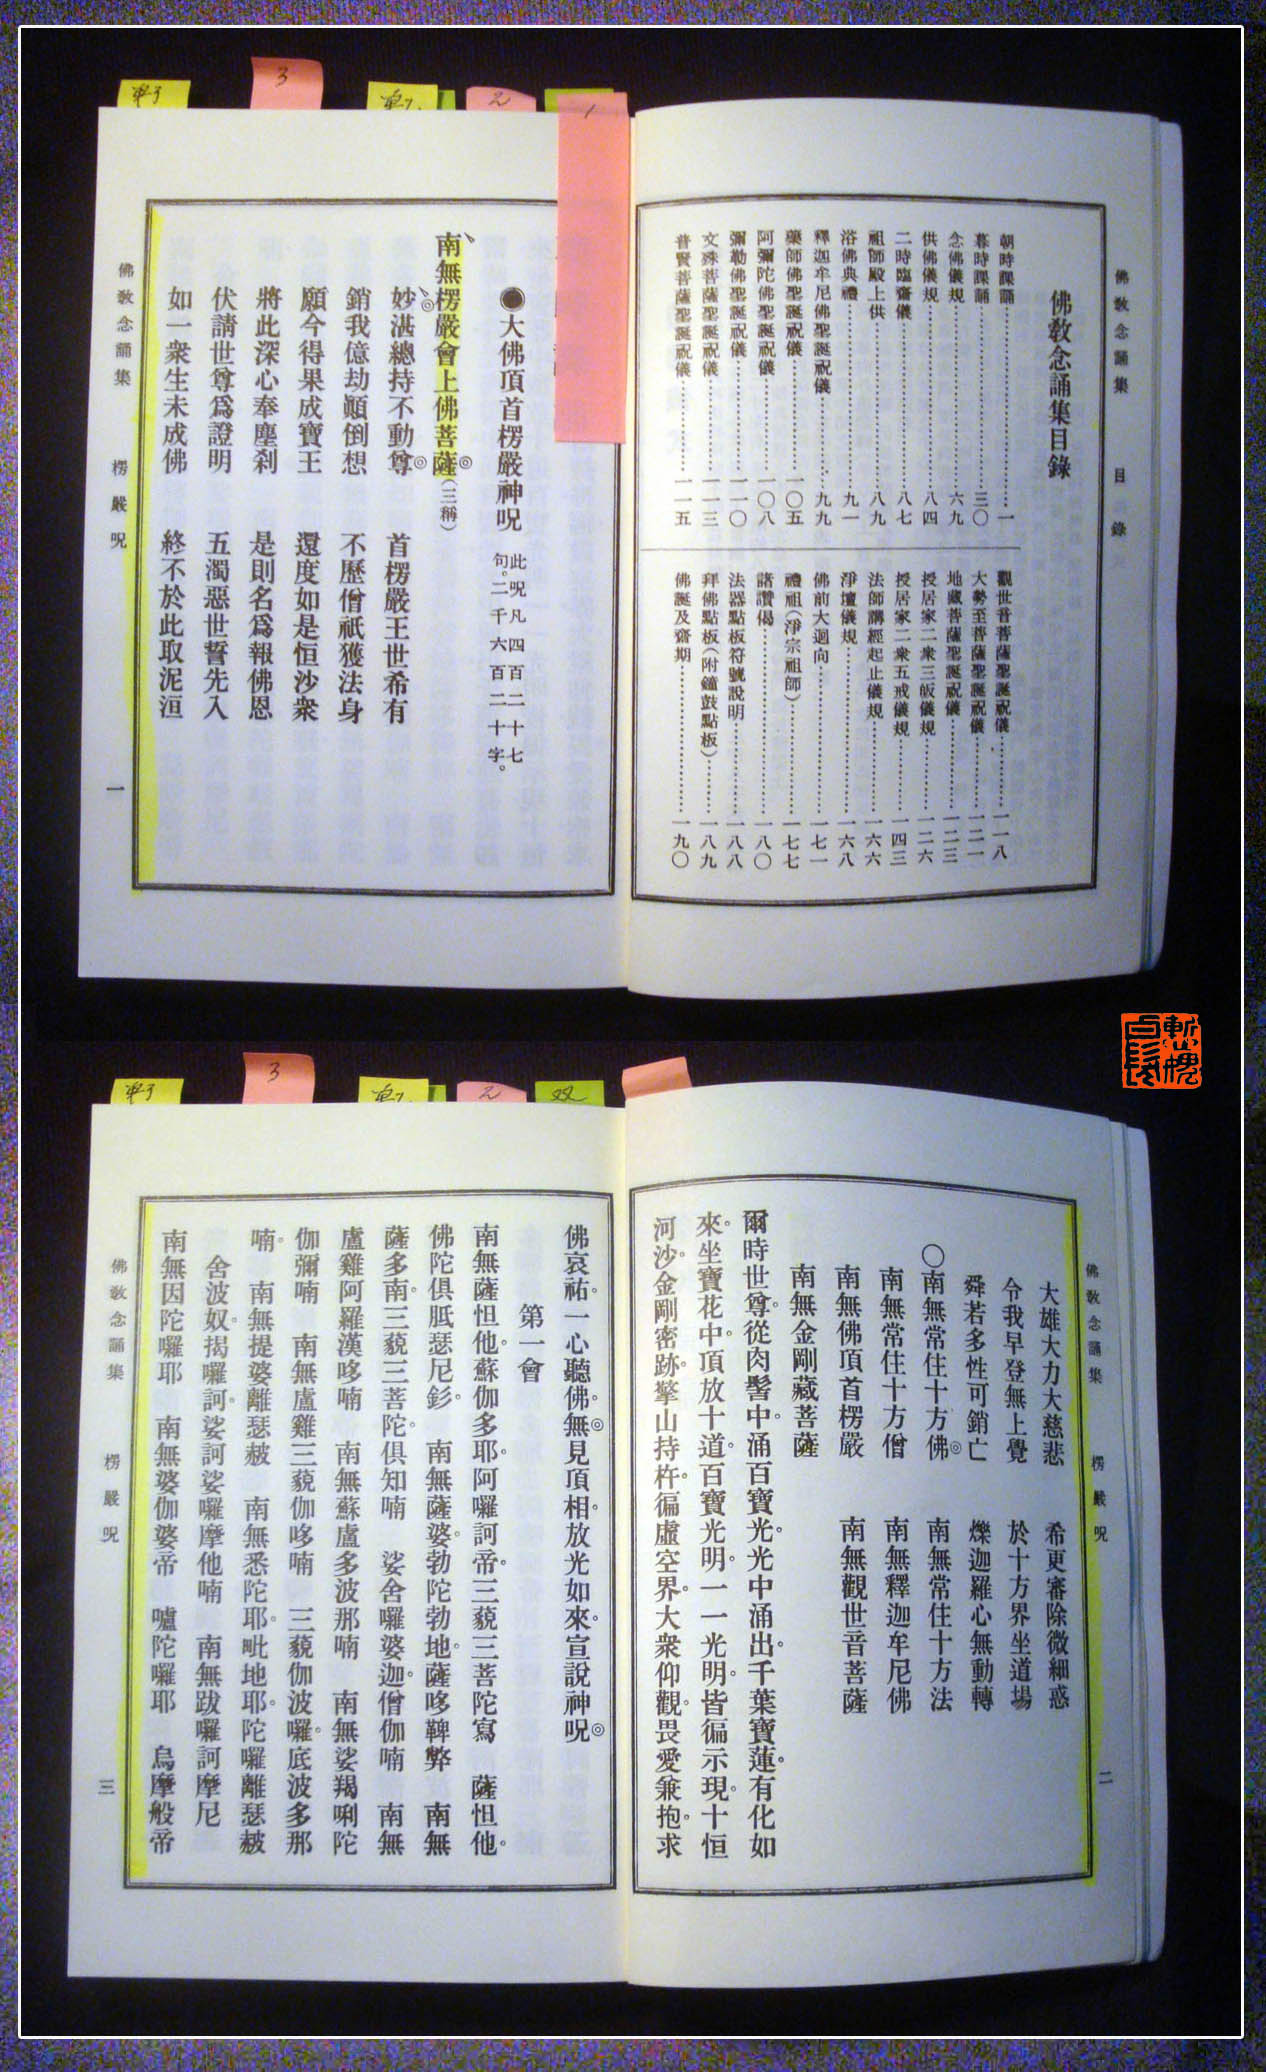 佛教念誦集 目錄
佛教念誦集目錄
朝時課誦…一
暮時課誦…三〇
念佛儀規…六九
供佛儀規…八四
二時臨齋儀…八七
祖師殿上供…八九
浴佛典禮…九一
釋迦牟尼佛聖誕祝儀…九九
藥師佛聖誕祝儀…一〇五
阿彌陀佛聖誕祝儀…一〇八
彌勒佛聖誕祝儀…一一〇
文殊菩薩聖誕祝儀…一一三
普賢菩薩聖誕祝儀…一一五
觀世音菩薩聖誕祝儀…一一八
大勢至菩薩聖誕祝儀…一二一
地藏菩薩聖誕祝儀…一二三
授居家二衆三皈儀規…一二六
授居家二衆五戒儀規…一四三
法師講經起止儀規…一六六
淨壇儀規…一六八
佛前大迴向…一七一
禮祖(淨宗祖師)…一七七
諸讚偈…一八〇
法器點板符號說明…一八八
拜佛點板(附鐘鼓點板)…一八九
佛誕及齋期…一九〇
1
2
3
●大佛頂首楞嚴神呪 此呪凡四百二十七句。二千六百二十字。
南無楞嚴會上佛菩薩(三稱)
妙湛總持不動尊 首楞嚴王世希有
銷我億劫顚倒想 不歷僧祇獲法身
願今得果成寶王 還度如是恒沙衆
將此深心奉塵刹 是則名爲報佛恩
伏請世尊爲證明 五濁惡世誓先入
如一衆生未成佛 終不於此取泥洹
佛教念誦集 楞嚴呪 一
佛教念誦集 楞嚴呪 二
大雄大力大慈悲 希更審除微細惑
令我早登無上覺 於十方界坐道場
舜若多性可銷亡 爍迦羅心無動轉
〇南無常住十方佛 南無常住十方法
南無常住十方僧 南無釋迦牟尼佛
南無佛頂首楞嚴 南無觀世音菩薩
南無金剛藏菩薩
爾時世尊。從肉髻中。涌百寶光。光中涌出。千葉寶蓮。有化如
來。坐寶花中。頂放十道。百寶光明。一一光明。皆徧示現。十恒
河沙。金剛密跡。擎山持杵。徧虛空界。大衆仰觀。畏愛兼抱。求
2
3
佛哀祐。一心聽佛。無見頂相。放光如來。宣說神呪
第一會
南無薩怛他。蘇伽多耶。阿囉訶帝。三藐三菩陀寫 薩怛他。
佛陀俱胝瑟尼釤。 南無薩婆。勃陀勃地。薩哆鞞弊 南無
薩多南。三藐三菩陀。俱知喃 娑舍囉婆迦。僧伽喃 南無
盧雞阿羅漢哆喃 南無蘇盧多波那喃 南無娑羯唎陀
伽彌喃 南無盧雞三藐伽哆喃 三藐伽波囉。底波多那
喃。 南無提婆離瑟赧 南無悉陀耶。毗地耶。陀囉離瑟赧
舍波奴。揭囉訶。娑訶娑囉摩他喃 南無跋囉訶摩尼
南無因陀囉耶 南無婆伽婆帝 嚧陀囉耶 烏摩般帝
佛教念誦集 楞嚴呪 三